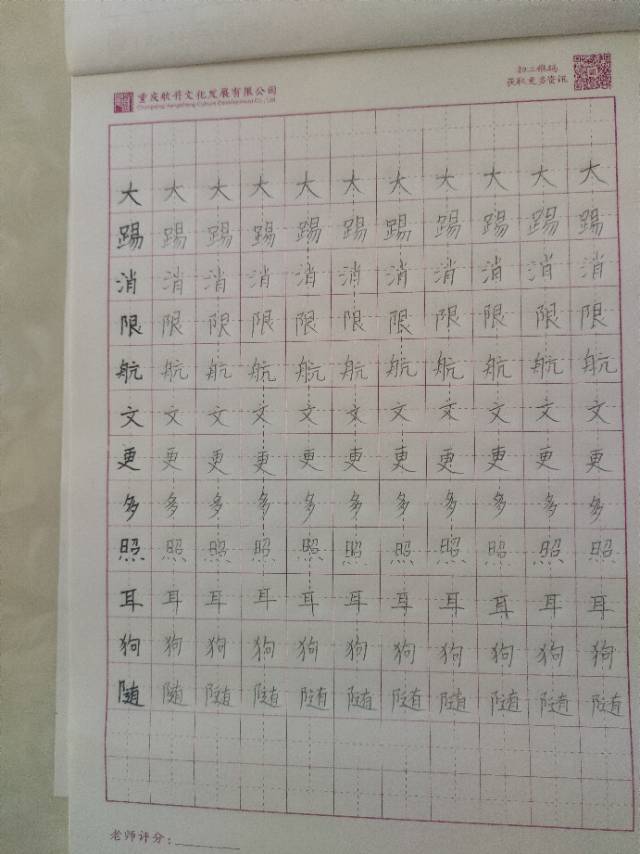 扫二维码
获取更多资讯
Culture Development Co., Ltd
大 大 大 大 大 大 大 大 大 大 大
踢 踢 踢 踢 踢 踢 踢 踢 踢 踢 踢
消 消 消 消 消 消 消 消 消 消 消
限 限 限 限 限 限 限 限 限 限 限
航 航 航 航 航 航 航 航 航 航 航
文 文 文 文 文 文 文 文 文 文 文
更 更 更 更 更 更 更 更 更 更 更
多 多 多 多 多 多 多 多 多 多 多
照 照 照 照 照 照 照 照 照 照 照
耳 耳 耳 耳 耳 耳 耳 耳 耳 耳 耳
狗 狗 狗 狗 狗 狗 狗 狗 狗 狗 狗
随 随 随 随 随 随 随 随 随 随 随
老师评分：